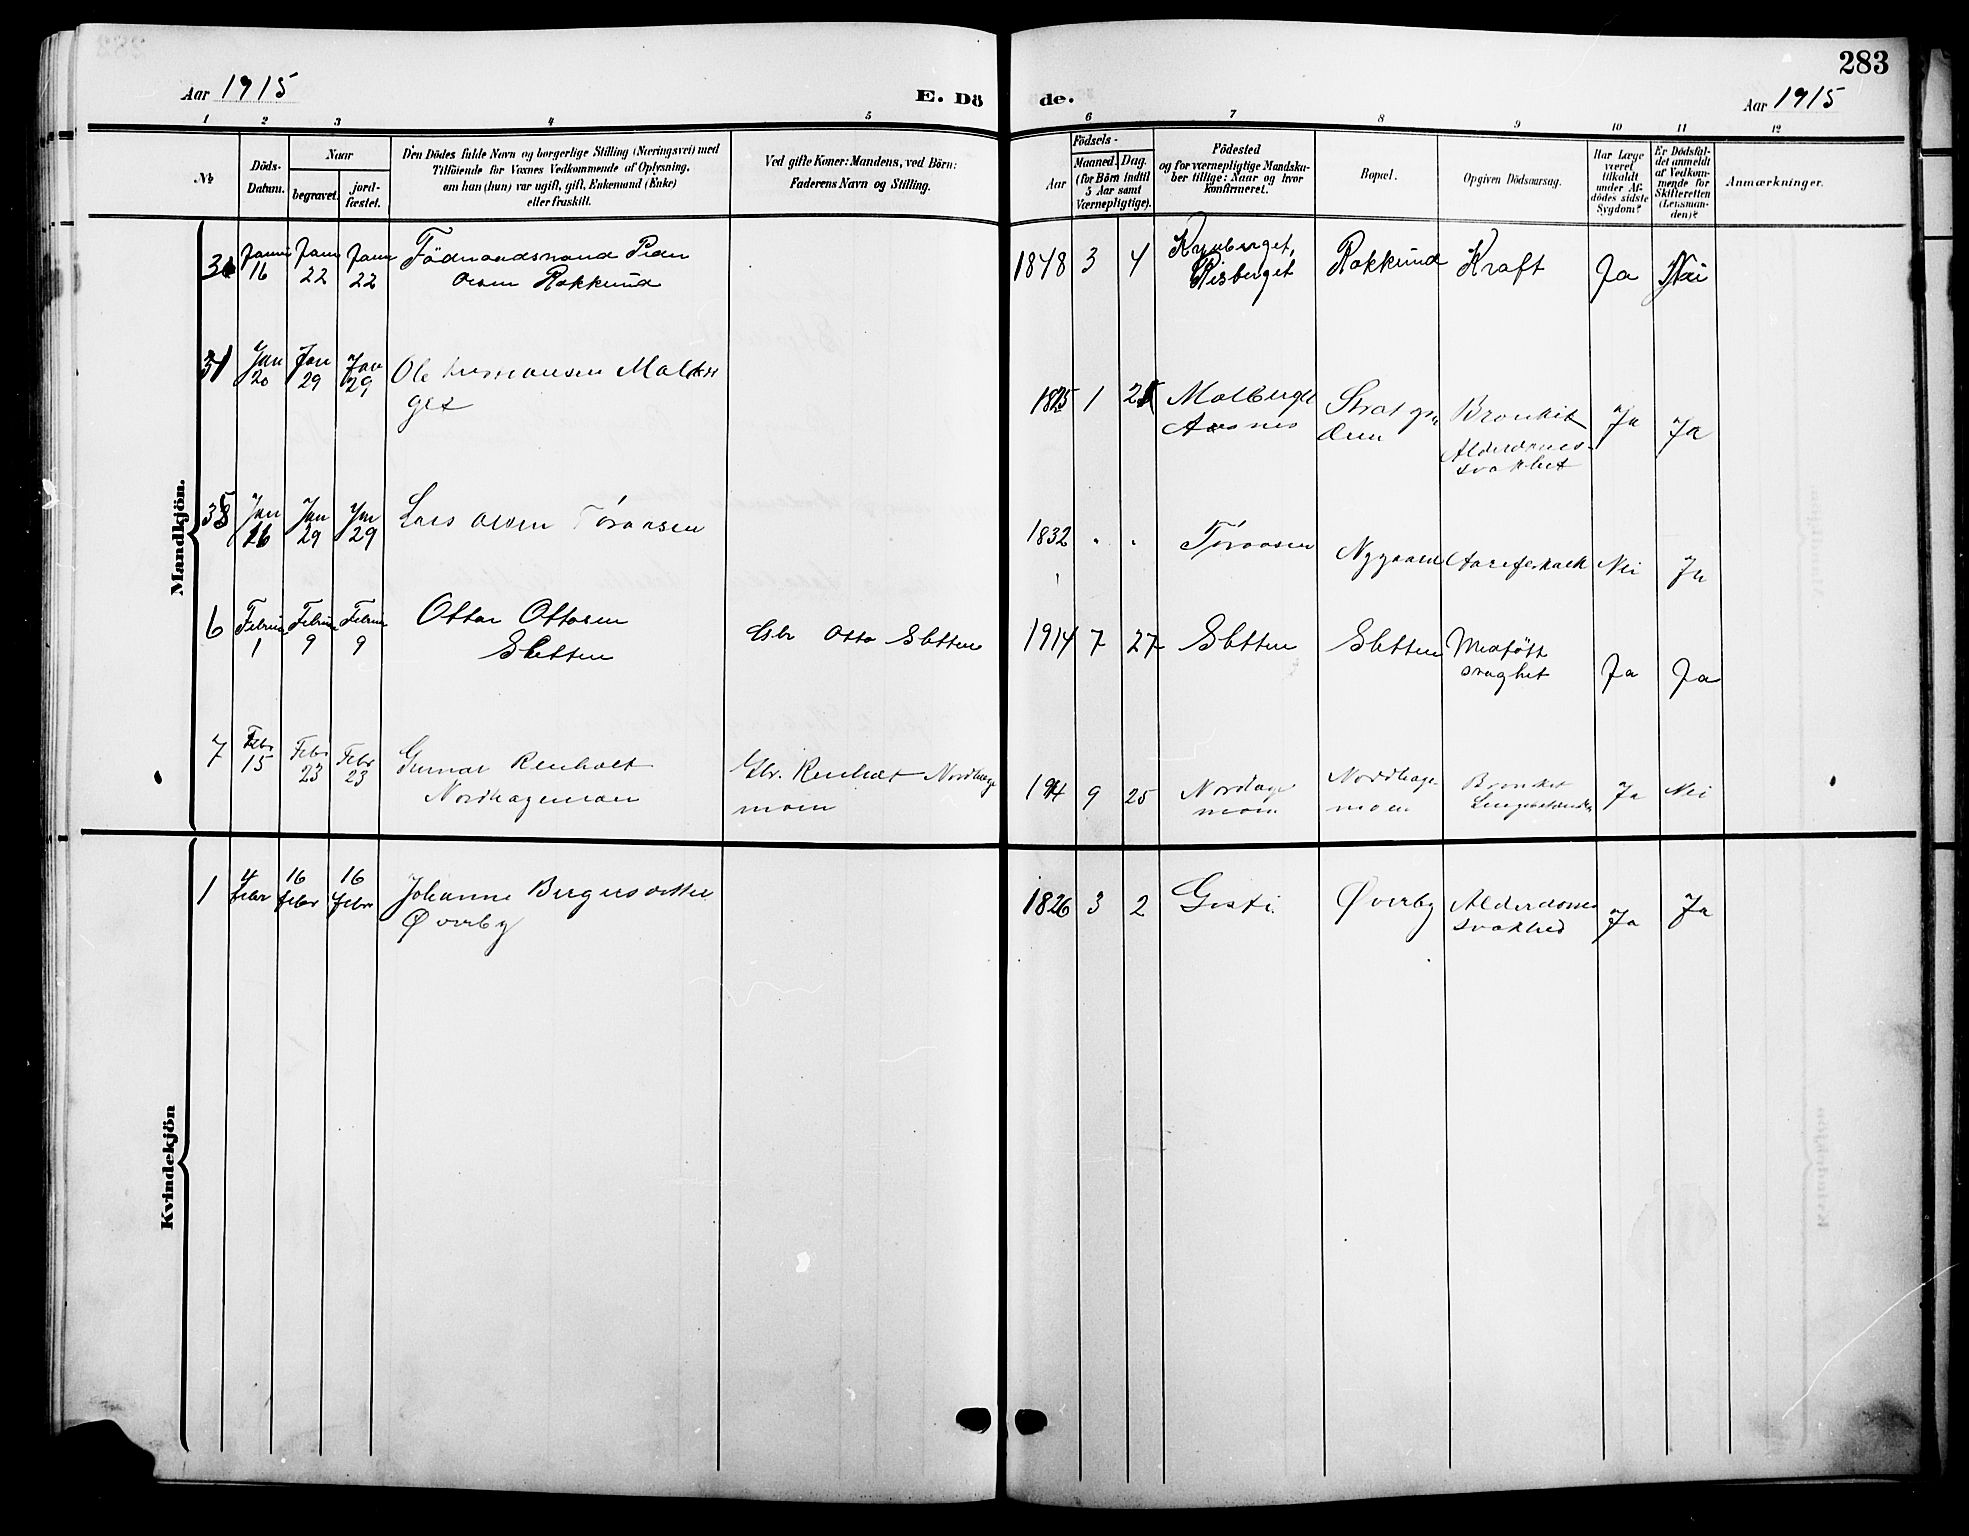 283
Aar 1915
E. Dö de.
Aar 1915
1 2 3 4 5 6 7 8 9 10 11 12
No
Döds-
Datum.
Naar
begravet.
jord-
fæstet.
Den Dödes fulde Navn og borgerlige Stilling (Næringsvei) med
Tilföiende for Voxnes Vedkommende af Oplysning,
om han (hun) var ugift, gift, Enkemand (Enke)
eller fraskilt.
Ved gifte Koner: Mandens, ved Börn:
Faderens Navn og Stilling.
Födsels-
Aar
Maaned. Dag.
(for Börn indtil
5 Aar samt
Værnepligtige).
Födested
og for værnepligtige Mandska-
ber tillige: Naar og hvor
konfirmeret.
Bopæl.
Opgiven Dödsaarsag.
Har Læge
været
tilkaldt
under Af-
dödes sidste
Sygdom?
Er Dödsfal-
det anmeldt
af Vedkom-
mende for
Skifteretten
(Lensman-
den)?
Anmærkninger.
Mandkjön.
16 22 22 Peder
Olsen Rokkund
1848 3 4 Risberget Rokkund Kraft Ja Nei
Jan 20 Jan 29 Jan 29 Ole
get
1 Aasnes Bronkit Ja Ja
Alderdoms-
svakhet
Jan Jan 29 29 Lars Olsen Töraasen
1832 " " Töraasen Nygaard Nei Ja
6 1 9 9 Ottar Ottosen
Sletten
Gbr Otto Sletten
1914 7 27 Sletten Sletten Medfött
svaghet Ja Ja
7 Febr 15 Febr 23 Febr 23 Gunnar Renholt
Nordhagemoen
Gbr. Renholt Nordhage
moen
1914 9 25 Nordage
moen Nordhage
moen Ja Nei
Kvindekjön
1 4 febr 16 febr 16 febr Johanne Bergersdatter
Øverby
1826 3 2 Gisti Øverby Alderdoms
svakhed Ja Ja